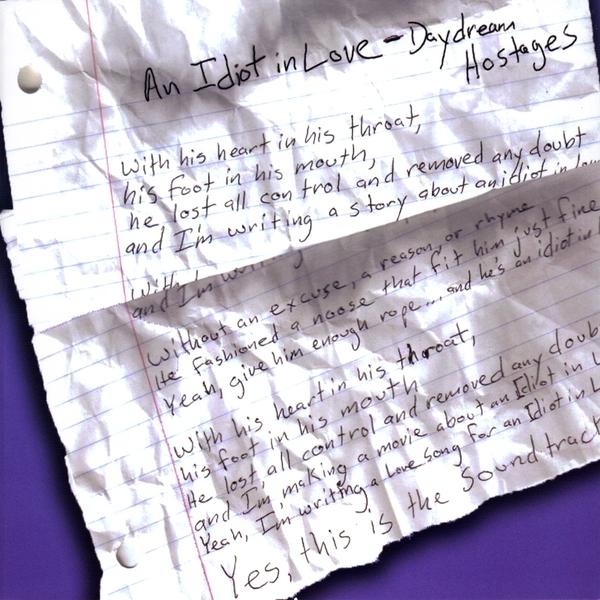 An Idiot in Love - Daydream
Hostages
With his heart in his throat,
his foot in his mouth,
he lost all control and removed any doubt
and I'm writing a story about an idiot in
and I'm
Without an excuse, a reason, or rhyme
He fashioned a noose that fit him just fine
Yeah, give him enough rope... and he's an idiot in
With his heart in his throat,
his foot in his mouth
He lost all control and removed any doub
and I'm making a movie about an Idiot in L
Yeah, I'm writing a Love song for an Idiot in L
Yes, this is the Soundtrack